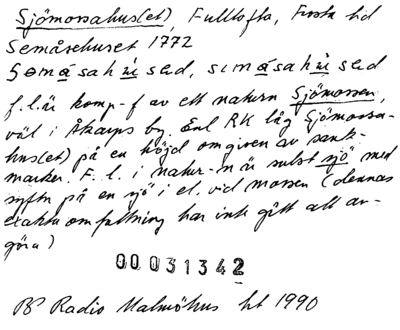 Sjömossahus(et), Fulltofta, Frosta hd
Semåsehuset 1772
f.l. är komp-f av ett naturn Sjömossen,
väl i Åkarps by. Enl RK låg Sjömossa-
hus(et) på en höjd omgiven av sank-
marker. F.l. i natur-n är subst sjö med
syftn på en sjö i el. vid mossen (dennas
exakta omfattning har inte gått att av-
göra)
00031342
BP Radio Malmöhus ht 1990